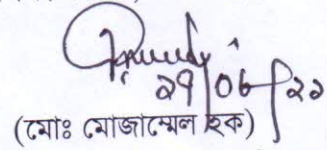 ২৭/০৬/২২
(মোঃ মোজাম্মেল হক)